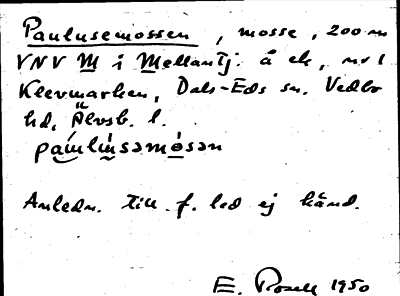 Paulusemossen, mosse, 200 m
VNV M i Mellantj. å ek, nr 1
Klevmarken, Dals-Eds sn. Vedbo
hd, Älvsb. l.
paulusəmosən
Anledn. till f. led ej känd.
E. Rosell 1950